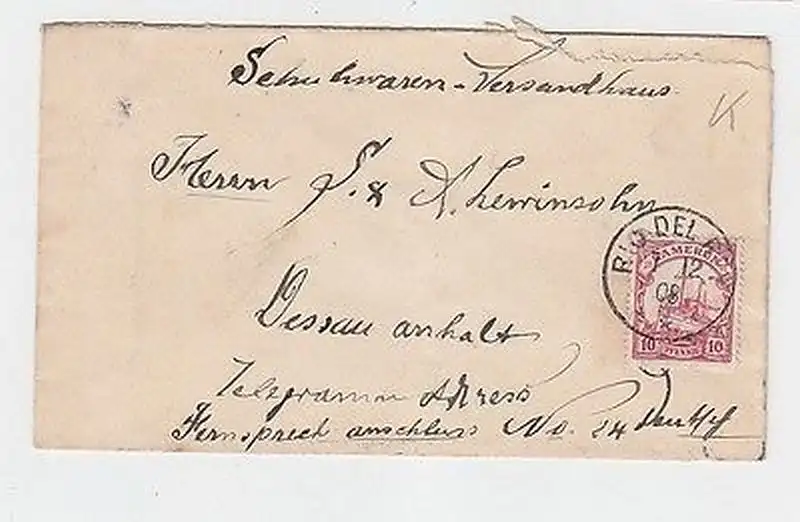 Schuhwaren-Versandhaus
K
Herrn S. & A. Lewinsohn
RIO DEL R
12
08
KAMERUN
10 PFENNIG 10
Dessau anhalt
Telegramm Adress
Fernsprech anschluss No. 24